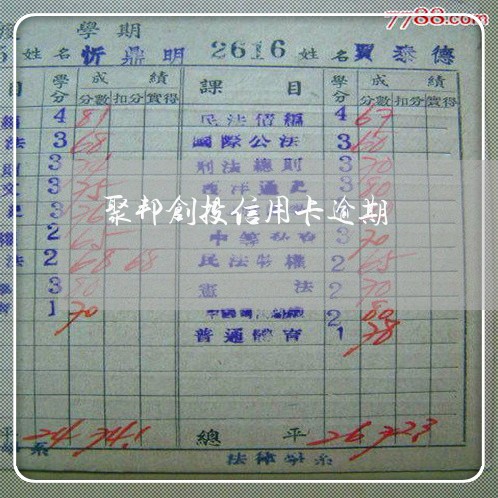 7788.com
學期
姓名 忻鼎明 2616 姓名 賈泰德
目 學分 成績 分數 扣分 實得 課目 學分 成績 分數 扣分 實得
4 81 民法債編 4 67
法 3 68 國際公法 3 60
3 刑法總則 3 70
3 75 西洋通史 3 80
3
聚邦創投信用卡逾期
2 65 3 70
法 2 68 68 民法物權 2 65
3 80 憲法 2 70
1 70 2 80
普通體育 1 78
平 24 74.1 總平 26 72.3
系 法律學系